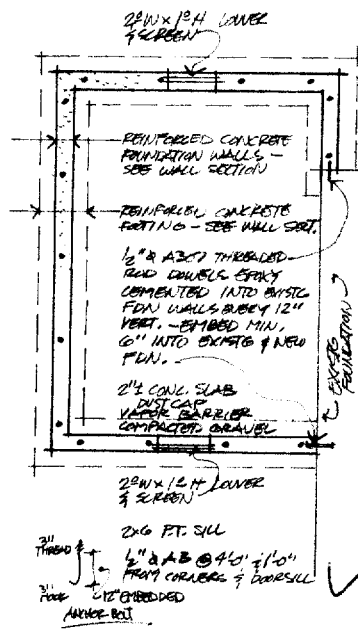 2⁰W x 1⁰H LOUVER
& SCREEN
REINFORCED CONCRETE
FOUNDATION WALLS -
SEE WALL SECTION
REINFORCED CONCRETE
FOOTING - SEE WALL SECT.
½" Ø A307 THREADED
ROD DOWELS EPOXY
CEMENTED INTO EXIST'G
FDN WALLS EVERY 12"
VERT. - EMBED MIN.
6" INTO EXIST'G & NEW
FDN.
EXIST'G
FOUNDATION
2"± CONC. SLAB
DUSTCAP
VAPOR BARRIER
COMPACTED GRAVEL
2⁰W x 1⁰H LOUVER
& SCREEN
2x6 P.T. SILL
½" Ø AB @ 4'-0" & 1'-0"
FROM CORNERS & DOORSILL
3"
THREAD
3"
HOOK
12" EMBEDDED
ANCHOR BOLT